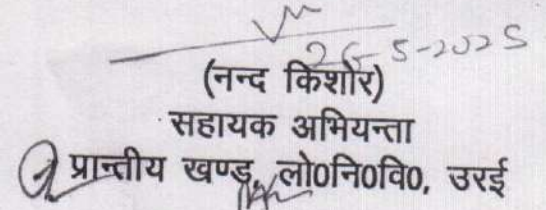 26-5-2025
(नन्द किशोर)
सहायक अभियन्ता
प्रान्तीय खण्ड, लो0नि0वि0, उरई